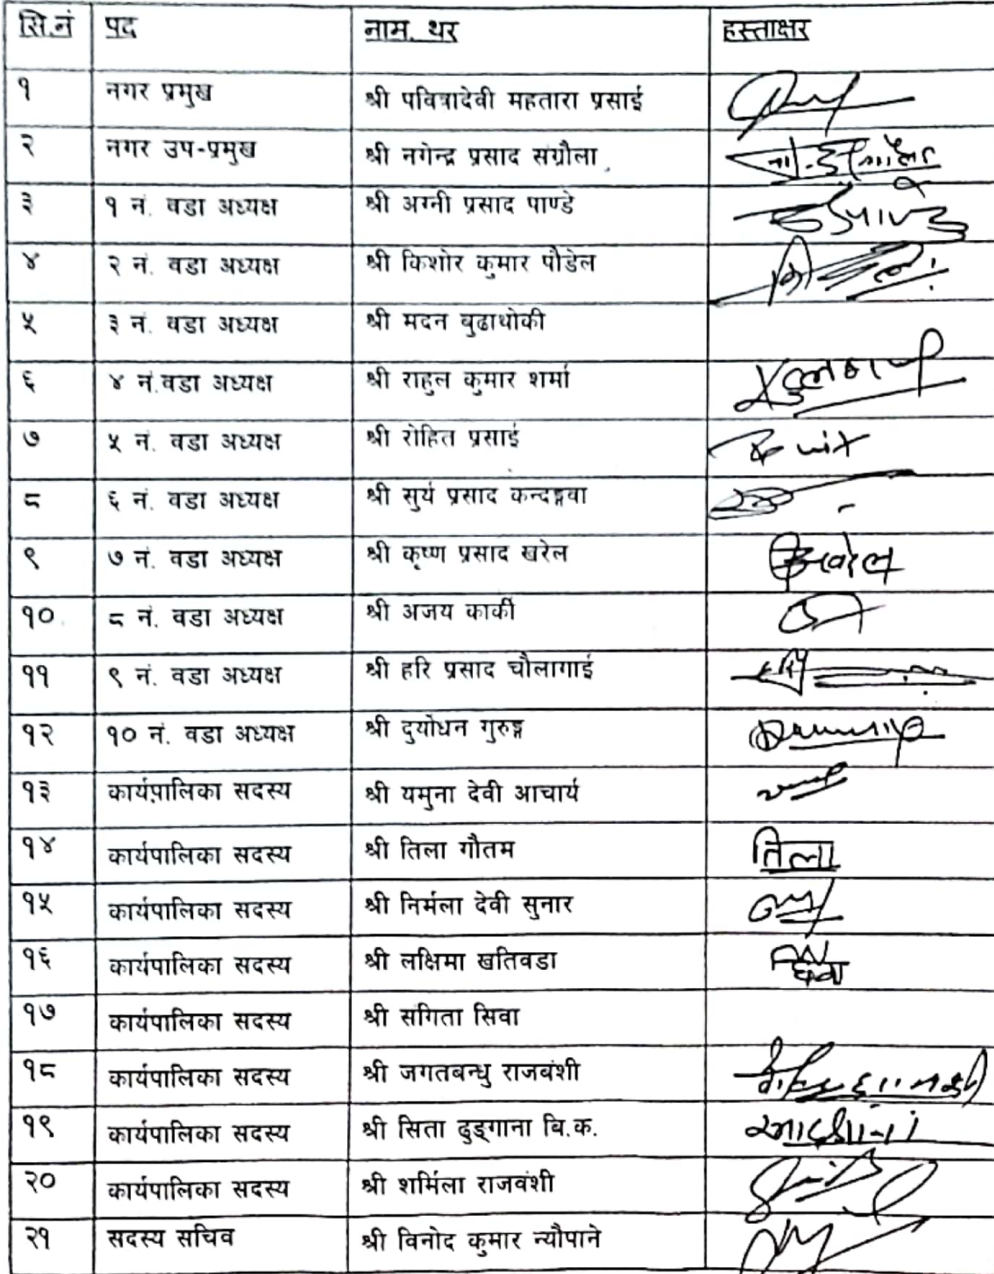 सि.नं पद नाम. थर हस्ताक्षर
१ नगर प्रमुख श्री पवित्रादेवी महतारा प्रसाई
२ नगर उप-प्रमुख श्री नगेन्द्र प्रसाद संग्रौला
३ १ नं. वडा अध्यक्ष श्री अग्नी प्रसाद पाण्डे
४ २ नं. वडा अध्यक्ष श्री किशोर कुमार पौडेल
५ ३ नं. वडा अध्यक्ष श्री मदन बुढाथोकी
६ ४ नं.वडा अध्यक्ष श्री राहुल कुमार शर्मा
७ ५ नं. वडा अध्यक्ष श्री रोहित प्रसाई
८ ६ नं. वडा अध्यक्ष श्री सुर्य प्रसाद कन्दङ्गवा
९ ७ नं. वडा अध्यक्ष श्री कृष्ण प्रसाद खरेल
१० ८ नं. वडा अध्यक्ष श्री अजय कार्की
११ ९ नं. वडा अध्यक्ष श्री हरि प्रसाद चौलागाई
१२ १० नं. वडा अध्यक्ष श्री दुर्योधन गुरुङ्ग
१३ कार्यपालिका सदस्य श्री यमुना देवी आचार्य
१४ कार्यपालिका सदस्य श्री तिला गौतम तिला
१५ कार्यपालिका सदस्य श्री निर्मला देवी सुनार
१६ कार्यपालिका सदस्य श्री लक्षिमा खतिवडा
१७ कार्यपालिका सदस्य श्री संगिता सिवा
१८ कार्यपालिका सदस्य श्री जगतबन्धु राजबंशी
१९ कार्यपालिका सदस्य श्री सिता ढुङ्गाना बि.क.
२० कार्यपालिका सदस्य श्री शर्मिला राजवंशी
२१ सदस्य सचिव श्री विनोद कुमार न्यौपाने